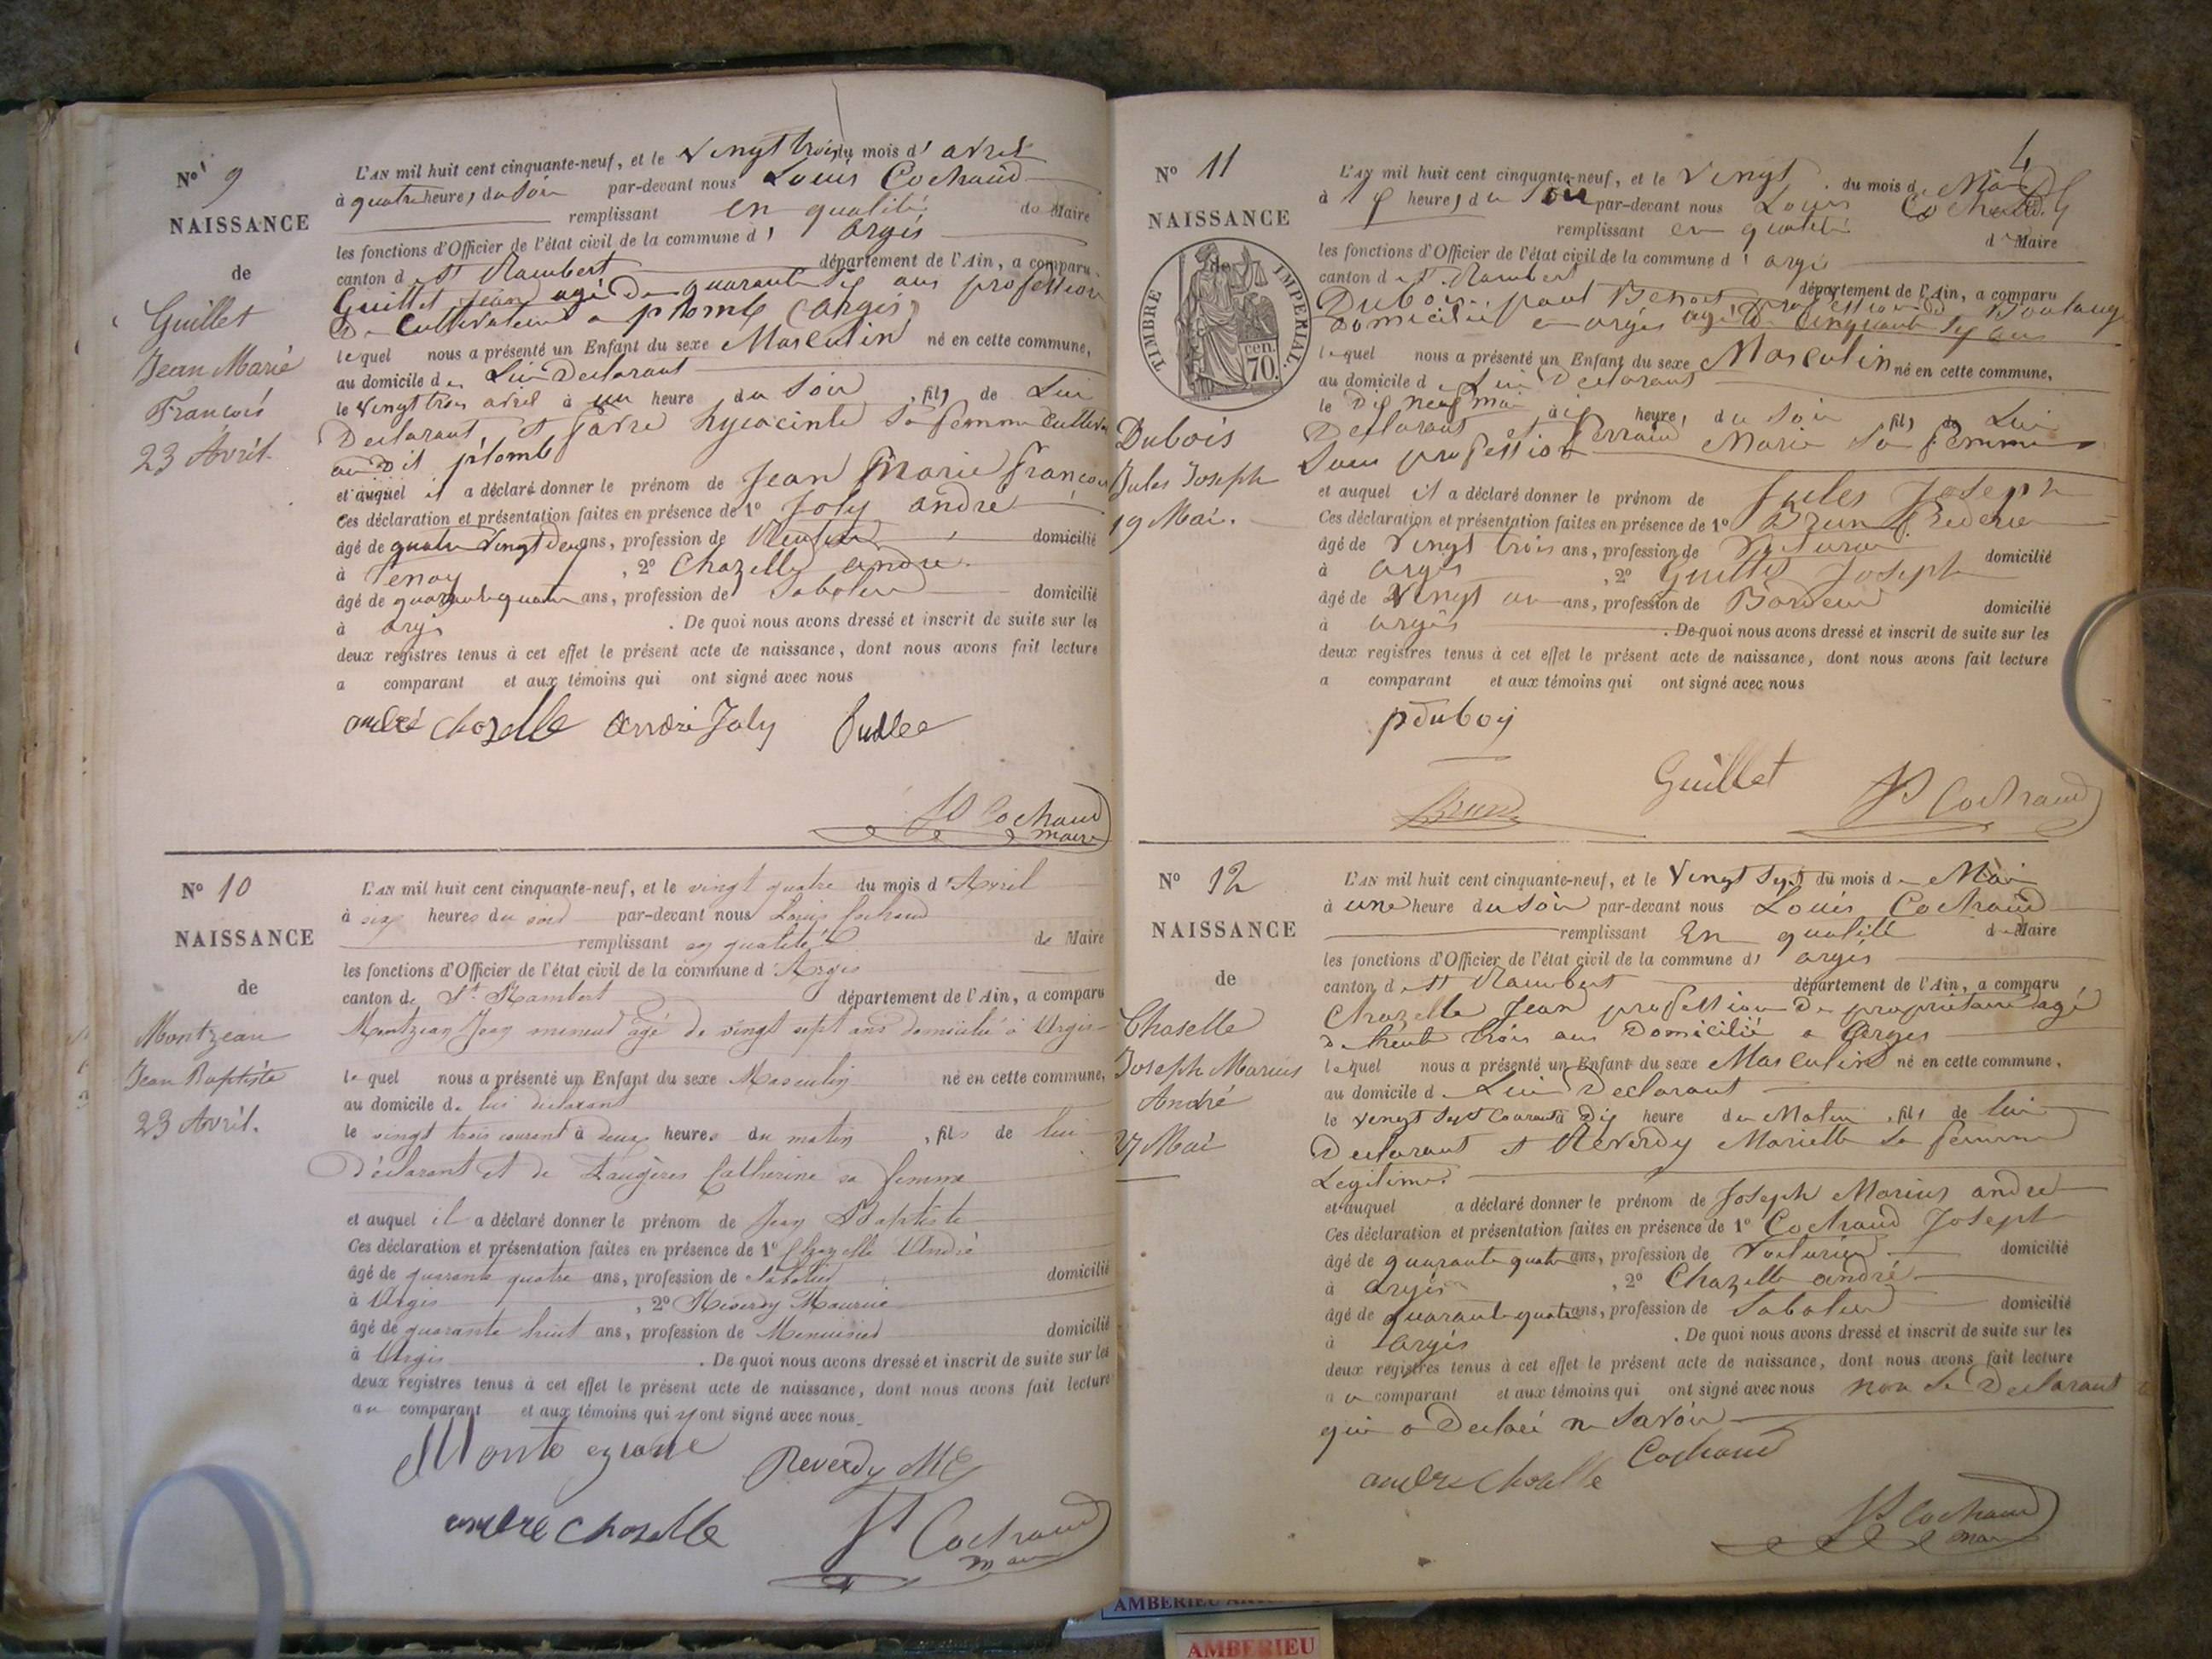 N° 9
NAISSANCE
de
Guillet
Jean Marie
François
23 Avril.
L'AN mil huit cent cinquante-neuf, et le Vingt trois du mois d' avril
à quatre heures du Soir par-devant nous Louis Cochaud
remplissant en qualité de Maire
les fonctions d'Officier de l'état civil de la commune d' argis
canton de St Rambert département de l'Ain, a comparu
Guillet jean agé de quarante six ans profession
De Cultivateur a plomb (argis)
lequel nous a présenté un Enfant du sexe Masculin né en cette commune,
au domicile de Lui Declarant
le Vingt trois avril à un heure du Soir, fils de Lui
Declarant et favre hyacinte Sa femme
au dit plomb
et auquel il a déclaré donner le prénom de Jean Marie françois
Ces déclaration et présentation faites en présence de 1° Joly andré
âgé de quatre Vingt deux ans, profession de domicilié
à Tenay, 2° Chazelle andré
âgé de quarante quatre ans, profession de Sabotier domicilié
à argis. De quoi nous avons dressé et inscrit de suite sur les
deux registres tenus à cet effet le présent acte de naissance, dont nous avons fait lecture
a comparant et aux témoins qui ont signé avec nous
andré chazelle andré Joly
Cochaud
maire
N° 10
NAISSANCE
de
Montzean
Jean Baptiste
23 Avril.
L'AN mil huit cent cinquante-neuf, et le vingt quatre du mois d'Avril
à six heures du soir par-devant nous Louis Cochaud
remplissant en qualité de Maire
les fonctions d'Officier de l'état civil de la commune d'Argis
canton de St Rambert département de l'Ain, a comparu
Montzean Jean mineur âgé de vingt sept ans domicilié à Argis
lequel nous a présenté un Enfant du sexe Masculin né en cette commune,
au domicile de lui déclarant
le vingt trois courant à deux heures du matin, fils de lui
déclarant et de Faugères Catherine sa femme
et auquel il a déclaré donner le prénom de Jean Baptiste
Ces déclaration et présentation faites en présence de 1° Chazelle André
âgé de quarante quatre ans, profession de Sabotier domicilié
à Argis, 2° Reverdy Maurice
âgé de quarante huit ans, profession de Menuisier domicilié
à Argis. De quoi nous avons dressé et inscrit de suite sur les
deux registres tenus à cet effet le présent acte de naissance, dont nous avons fait lecture
au comparant et aux témoins qui ont signé avec nous
Reverdy
andre chazelle Cochaud
maire
4
N° 11
NAISSANCE
de
TIMBRE IMPERIAL.
70. cen.
Dubois
Jules Joseph
19 Mai.
L'AN mil huit cent cinquante-neuf, et le Vingt du mois de Mai
à heures du Soir par-devant nous Louis Cochaud
remplissant en qualité de Maire
les fonctions d'Officier de l'état civil de la commune d' argis
canton de St Rambert département de l'Ain, a comparu
Dubois paul Benoit profession de Boulanger
domicilié a argis agé de Cinquante six ans
lequel nous a présenté un Enfant du sexe Masculin né en cette commune,
au domicile de Lui Declarant
le Dix neuf mai à six heures du Soir fils de Lui
Declarant et Ferrand Marie Sa femme
Sans profession
et auquel il a déclaré donner le prénom de Jules Joseph
Ces déclaration et présentation faites en présence de 1° Brun
âgé de Vingt trois ans, profession de Voiturier domicilié
à argis, 2° Guillet Joseph
âgé de Vingt un ans, profession de domicilié
à argis. De quoi nous avons dressé et inscrit de suite sur les
deux registres tenus à cet effet le présent acte de naissance, dont nous avons fait lecture
a comparant et aux témoins qui ont signé avec nous
p duboy
Brun Guillet Cochaud
N° 12
NAISSANCE
de
Chaselle
Joseph Marius
André
27 Mai
L'AN mil huit cent cinquante-neuf, et le Vingt Sept du mois de Mai
à une heure du Soir par-devant nous Louis Cochaud
remplissant En qualité de Maire
les fonctions d'Officier de l'état civil de la commune d' argis
canton de St Rambert département de l'Ain, a comparu
Chazelle Jean profession De propriétaire agé
de trente trois ans Domicilié a argis
lequel nous a présenté un Enfant du sexe Masculin né en cette commune,
au domicile de Lui Declarant
le Vingt Sept Courant à Dix heure du Matin, fils de lui
Declarant et Reverdy Mariette Sa femme
Legitime.
et auquel a déclaré donner le prénom de Joseph Marius andré
Ces déclaration et présentation faites en présence de 1° Cochaud Joseph
âgé de quarante quatre ans, profession de Voiturier domicilié
à argis, 2° Chazelle andré
âgé de quarante quatre ans, profession de Sabotier domicilié
à argis. De quoi nous avons dressé et inscrit de suite sur les
deux registres tenus à cet effet le présent acte de naissance, dont nous avons fait lecture
au comparant et aux témoins qui ont signé avec nous non le Declarant
qui a Declaré ne Savoir
andre chazelle Cochaud
Cochaud
maire
AMBERIEU
AMBERIEU